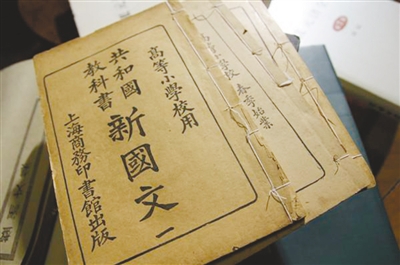 高等小學校用
共和國
教科書
新國文 一
上海商務印書館出版
學校 春季始業